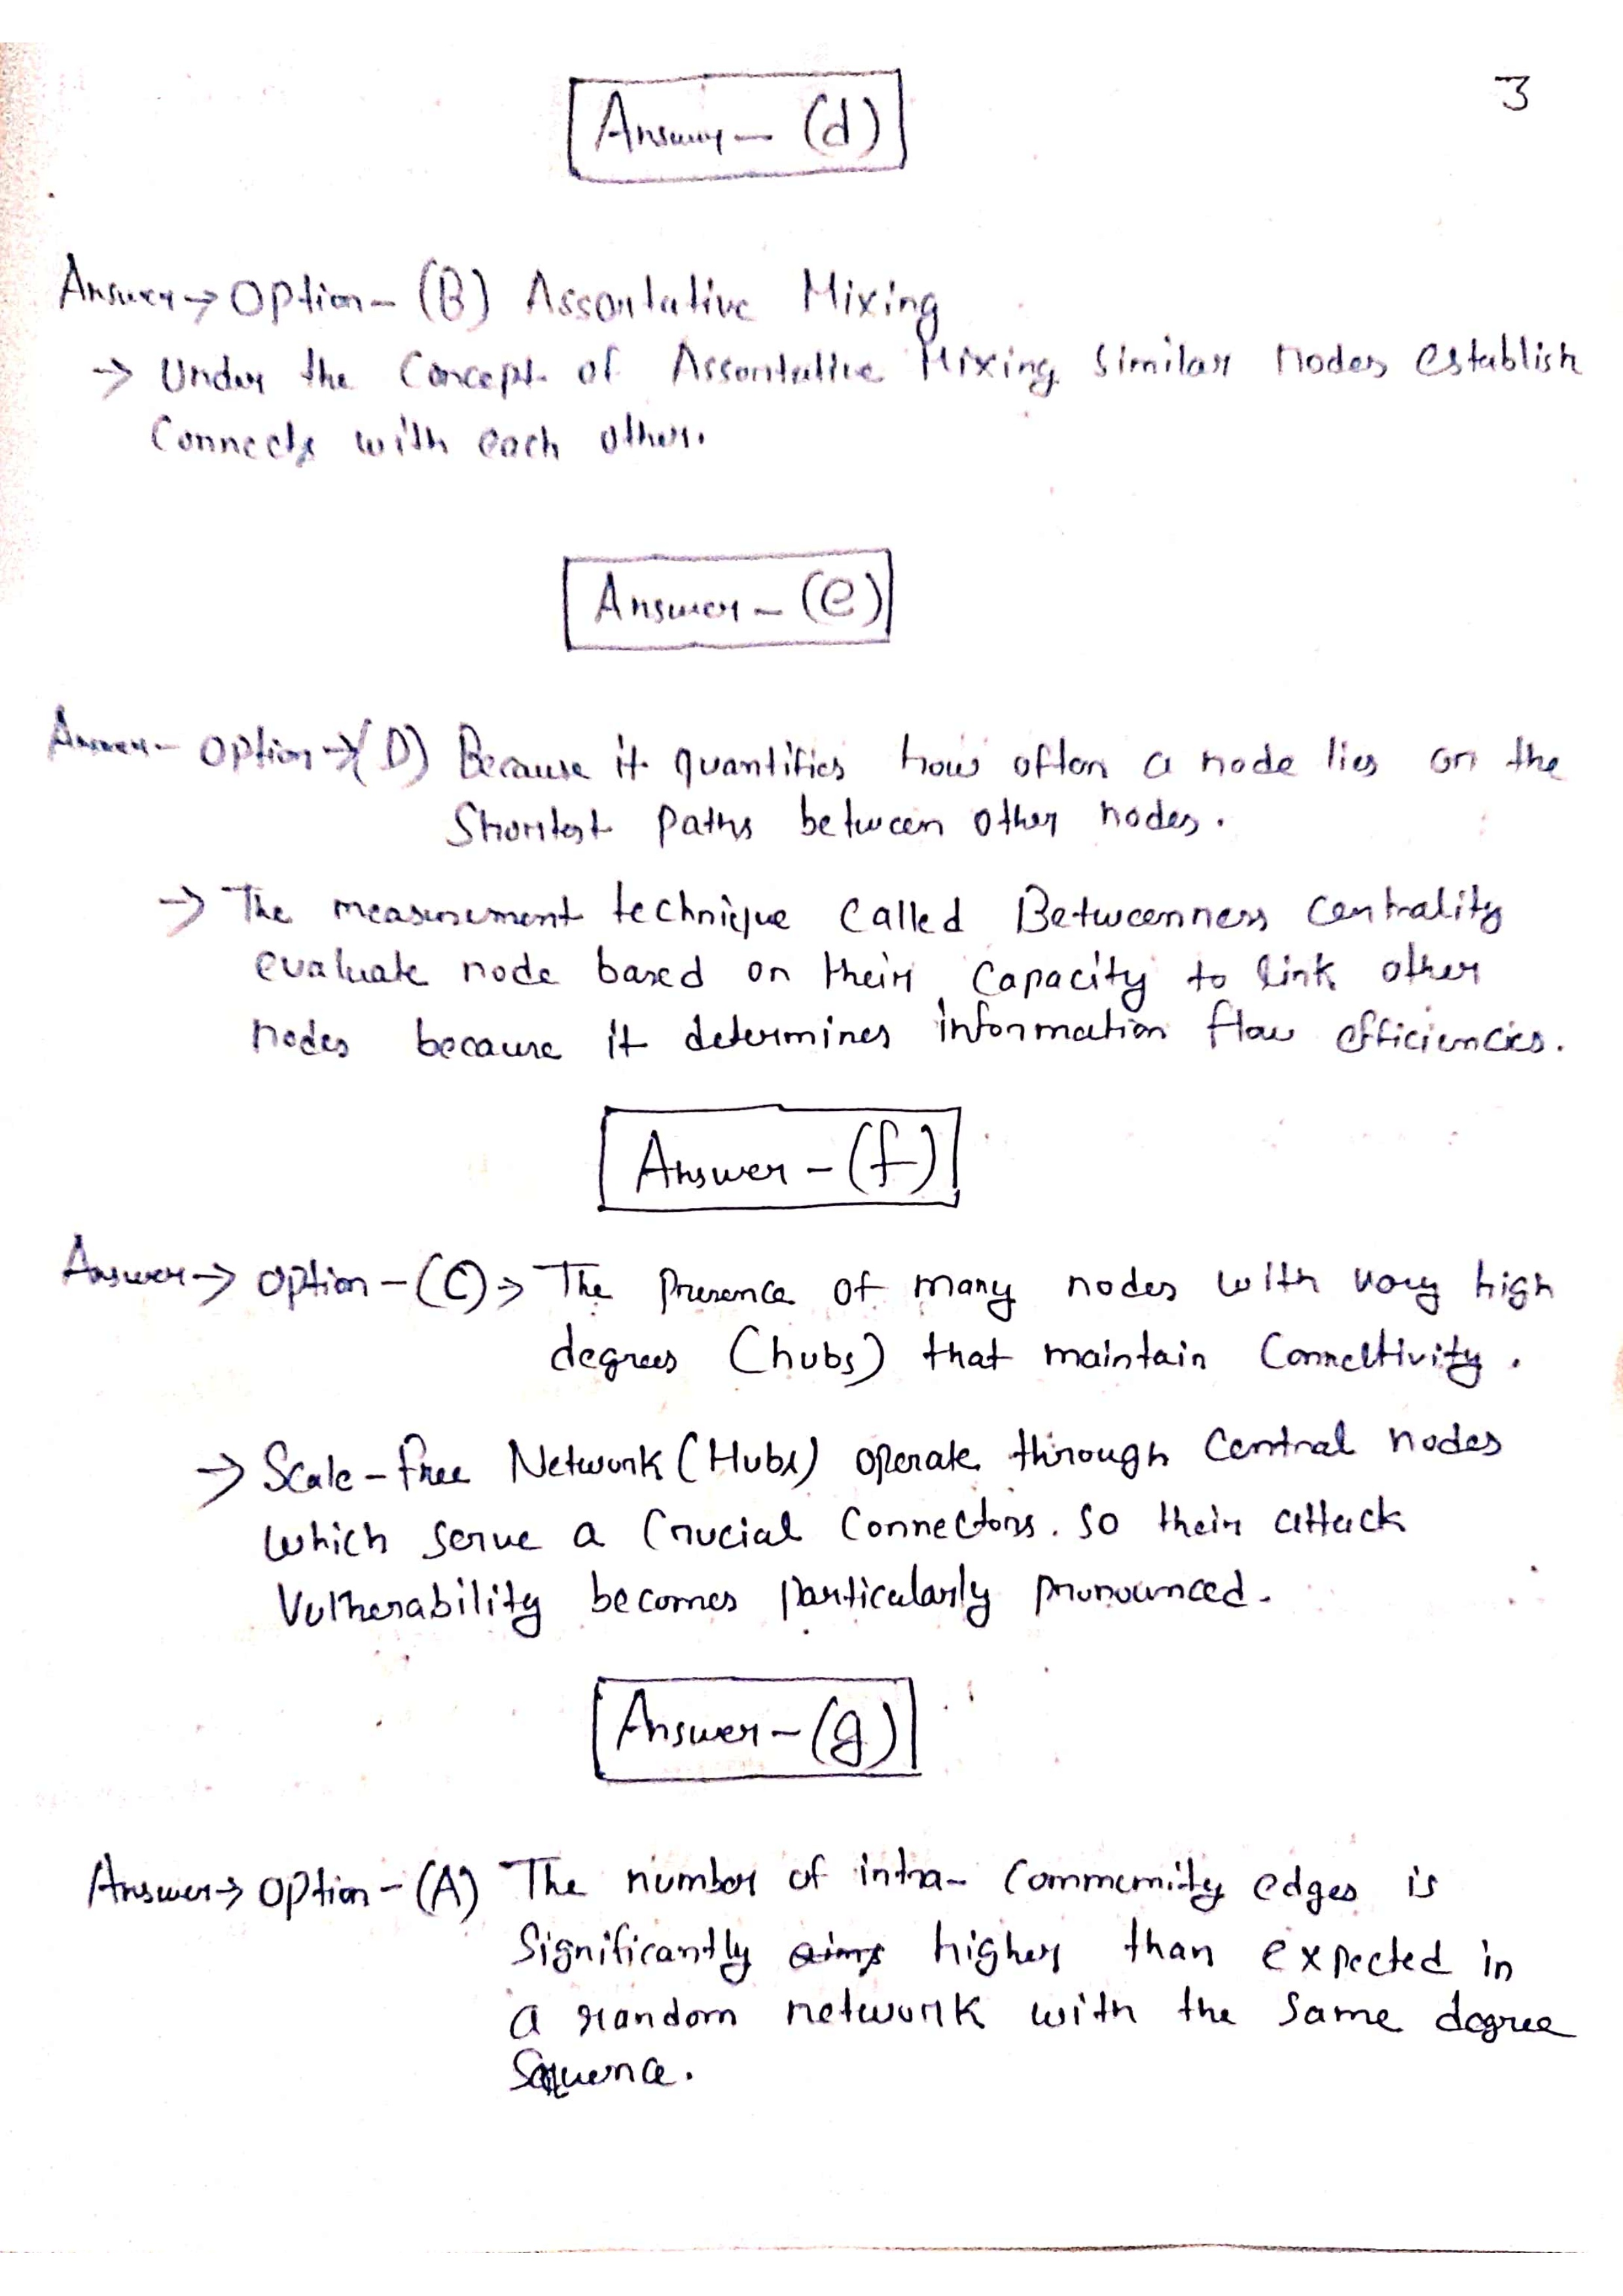 3
Answer - (d)
Answer → Option - (B) Assortative Mixing
→ Under the Concept of Assortative Mixing Similar nodes establish
Connects with each other.
Answer - (e)
Answer - Option → (D) Because it quantifies how often a node lies on the
Shortest Paths between other nodes.
→ The measurement technique Called Betweenness Centrality
evaluate node based on their Capacity to link other
nodes because it determines information flow efficiencies.
Answer - (f)
Answer → Option - (C) → The Presence of many nodes with very high
degrees (hubs) that maintain Connectivity.
→ Scale-free Network (Hubs) operate through Central nodes
which serve a Crucial Connectors. So their attack
Vulnerability becomes Particularly pronounced.
Answer - (g)
Answer → Option - (A) The number of intra- Community edges is
Significantly higher than expected in
a random network with the Same degree
Sequence.